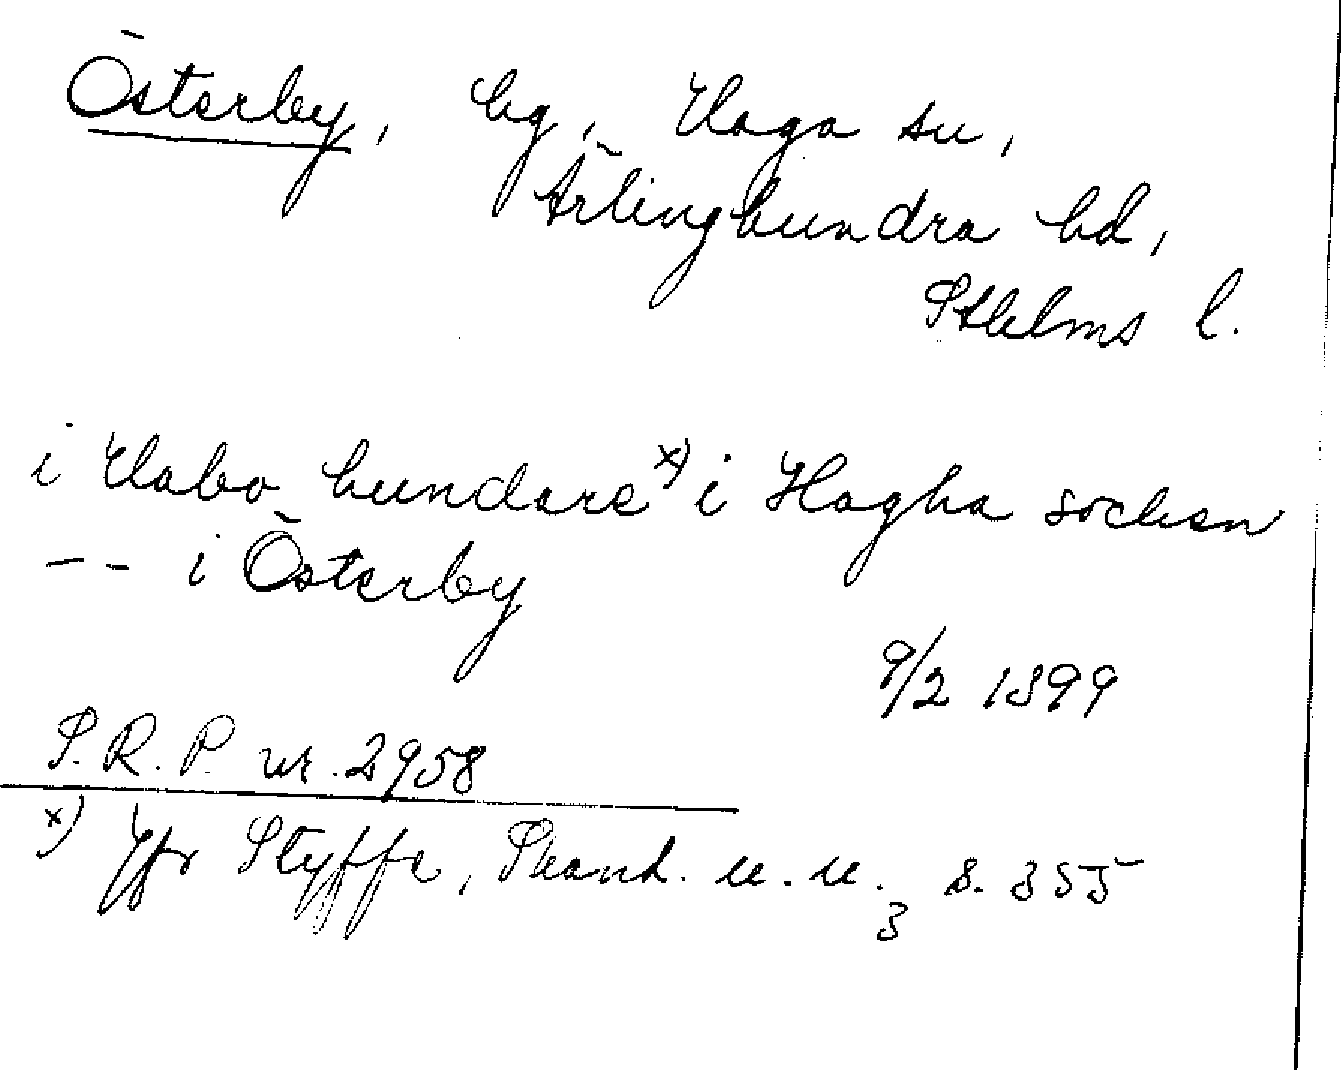 Österby, by, Haga sn,
Ärlinghundra hd,
Sthlms l.
i Habo hundare x) i Hagha socken
-- i Österby
9/2 1399
S.R.P. nr. 2958
x) Jfr Styffe, Skand. u. u. 3 s. 355